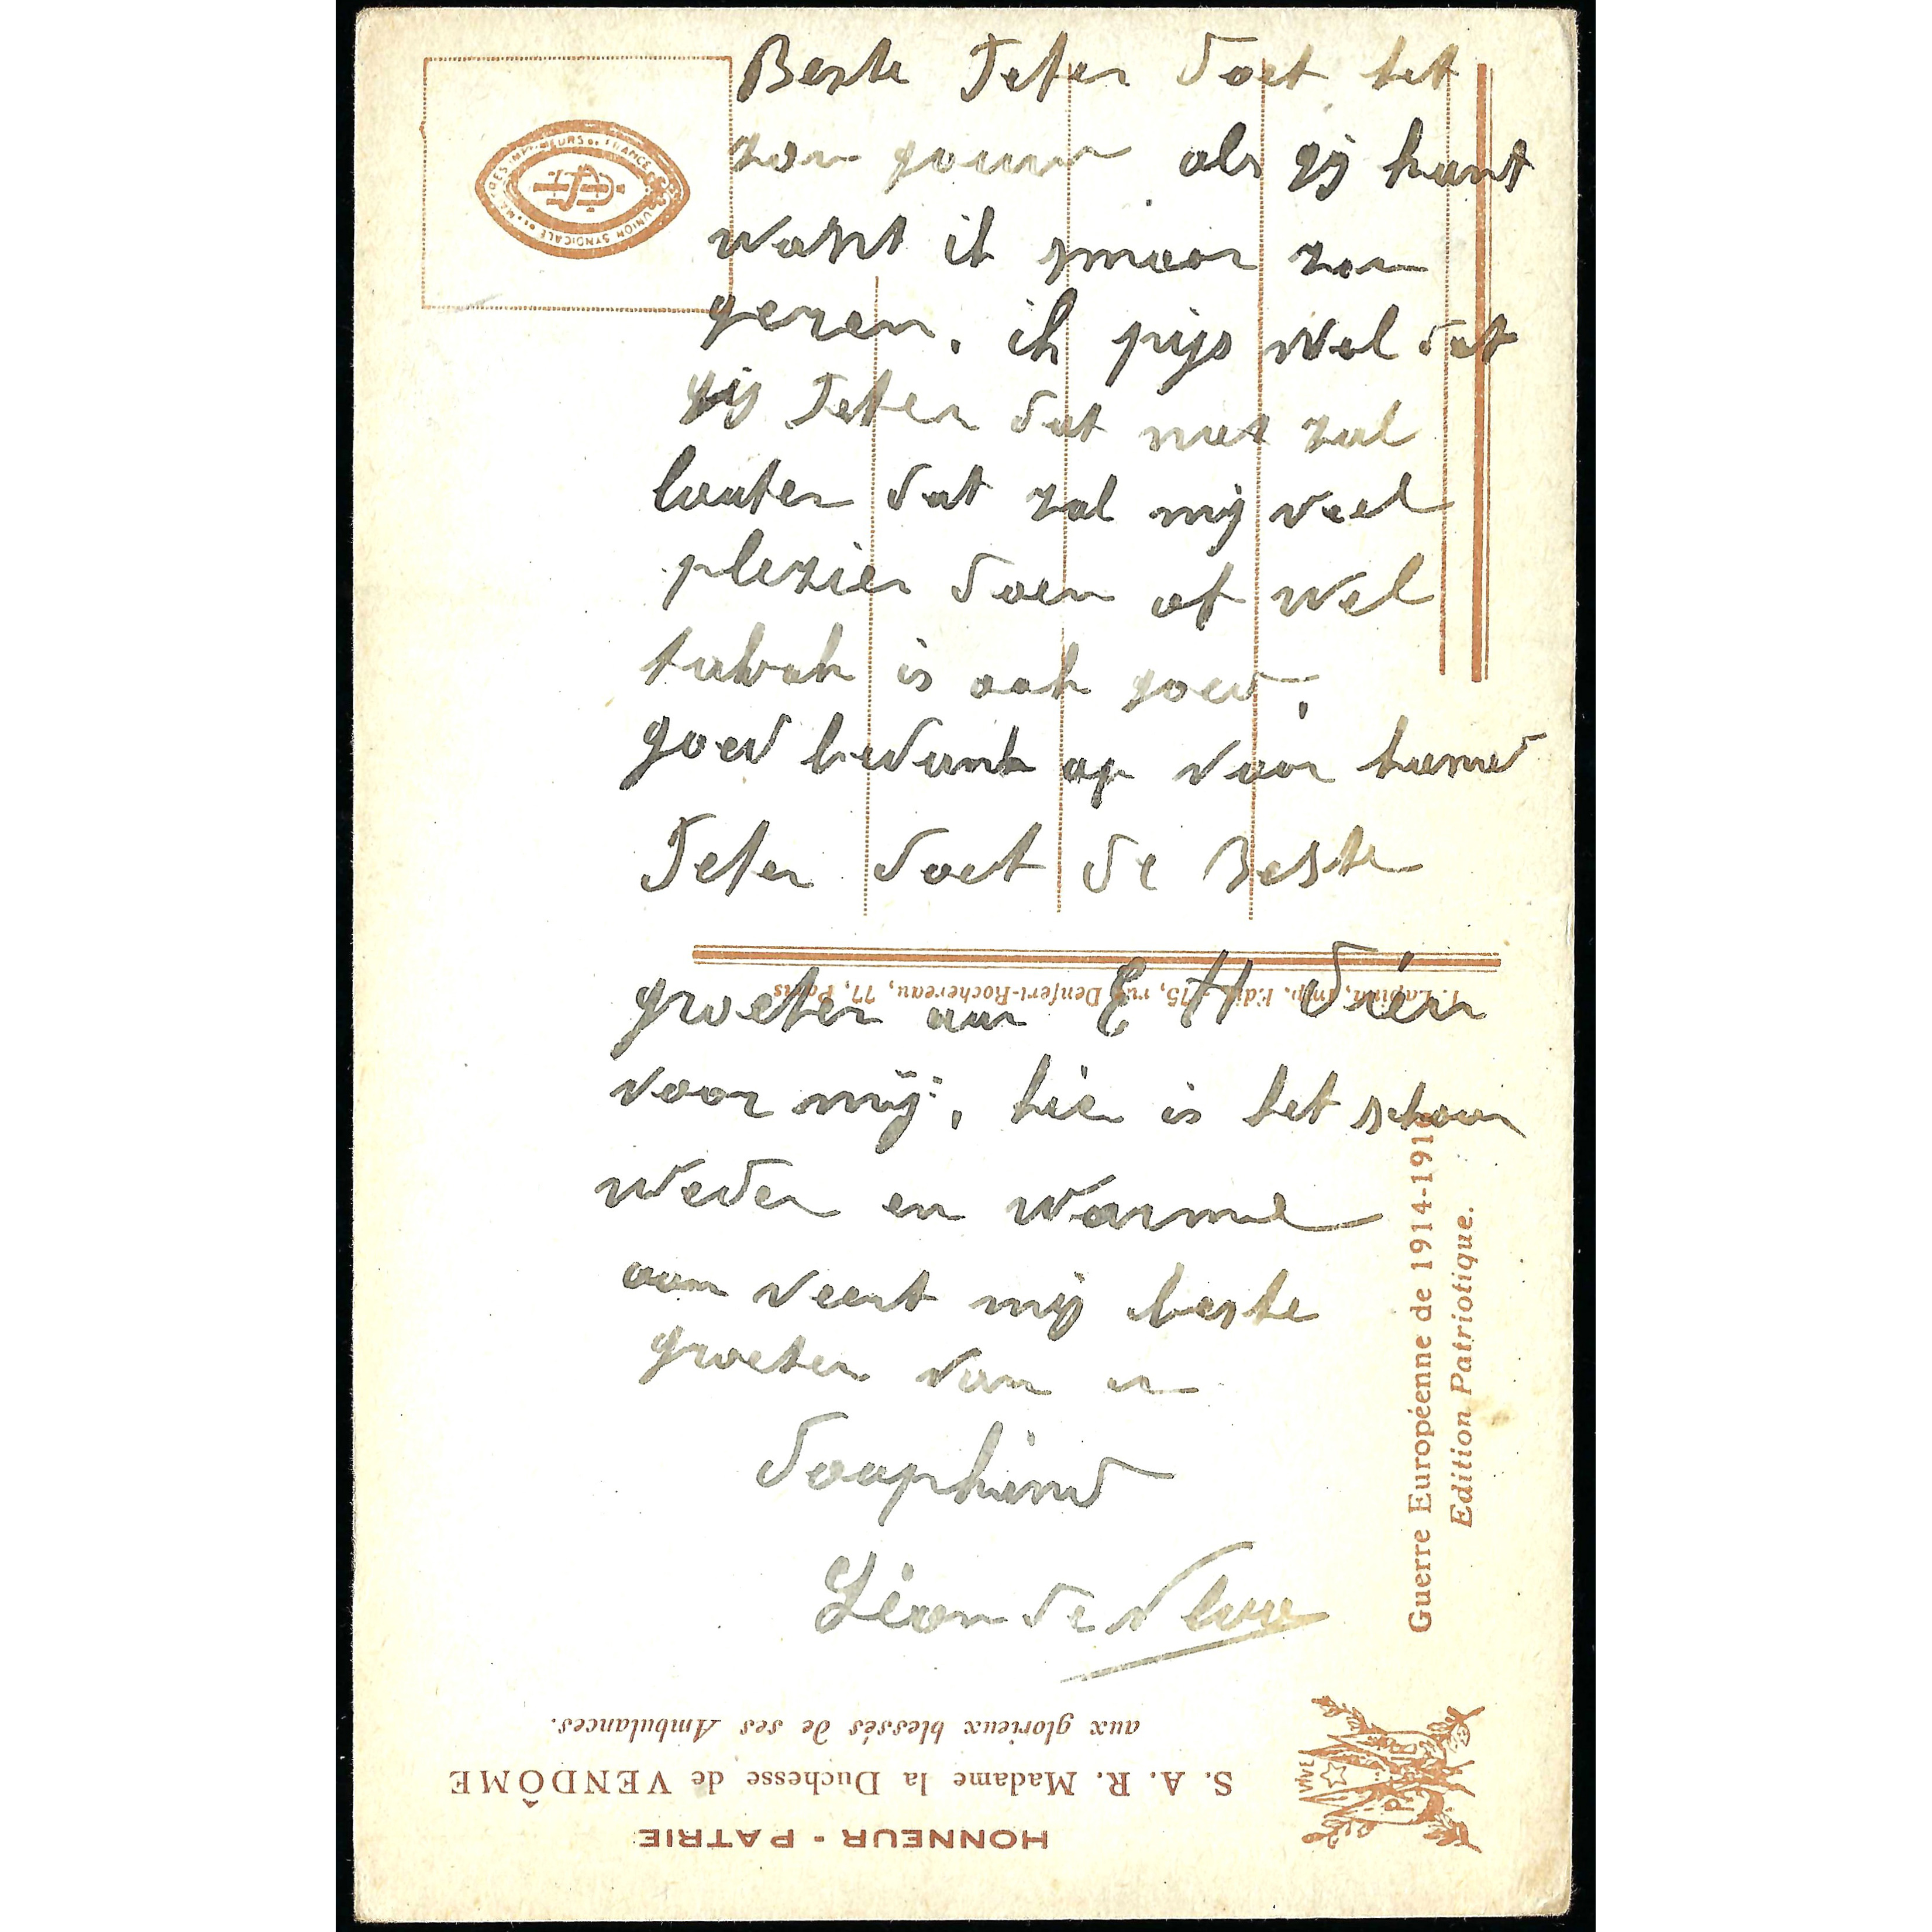 Beste Peter doet het
zon gouw als gij kunt
want ik smoor zon
geren. ik pijs wel dat
gij Peter dat niet zal
laaten dat zal mij veel
plezier doen of wel
tabak is ook goed,
goed bedankt op voor hand
Peter doet de Beste
groeten aan E H
voor mij, hier is het schoon
weder en warme
aan veert mij beste
groeten van u
doopkind
Léon de
F. Lapina, Imp. Édit., 75, rue Denfert-Rochereau, 77, Paris
Guerre Européenne de 1914-191
Edition Patriotique.
HONNEUR - PATRIE
S. A. R. Madame la Duchesse de VENDÔME
aux glorieux blessés de ses Ambulances.
VIVE
UNION SYNDICALE DE MAITRES IMPRIMEURS DE FRANCE